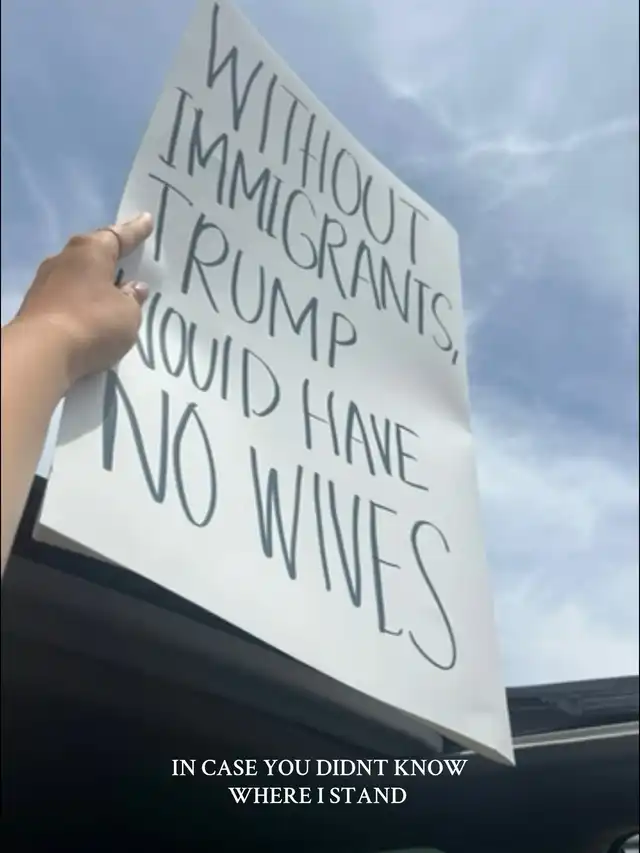 WITHOUT
IMMIGRANTS,
TRUMP
WOULD HAVE
NO WIVES
IN CASE YOU DIDNT KNOW
WHERE I STAND